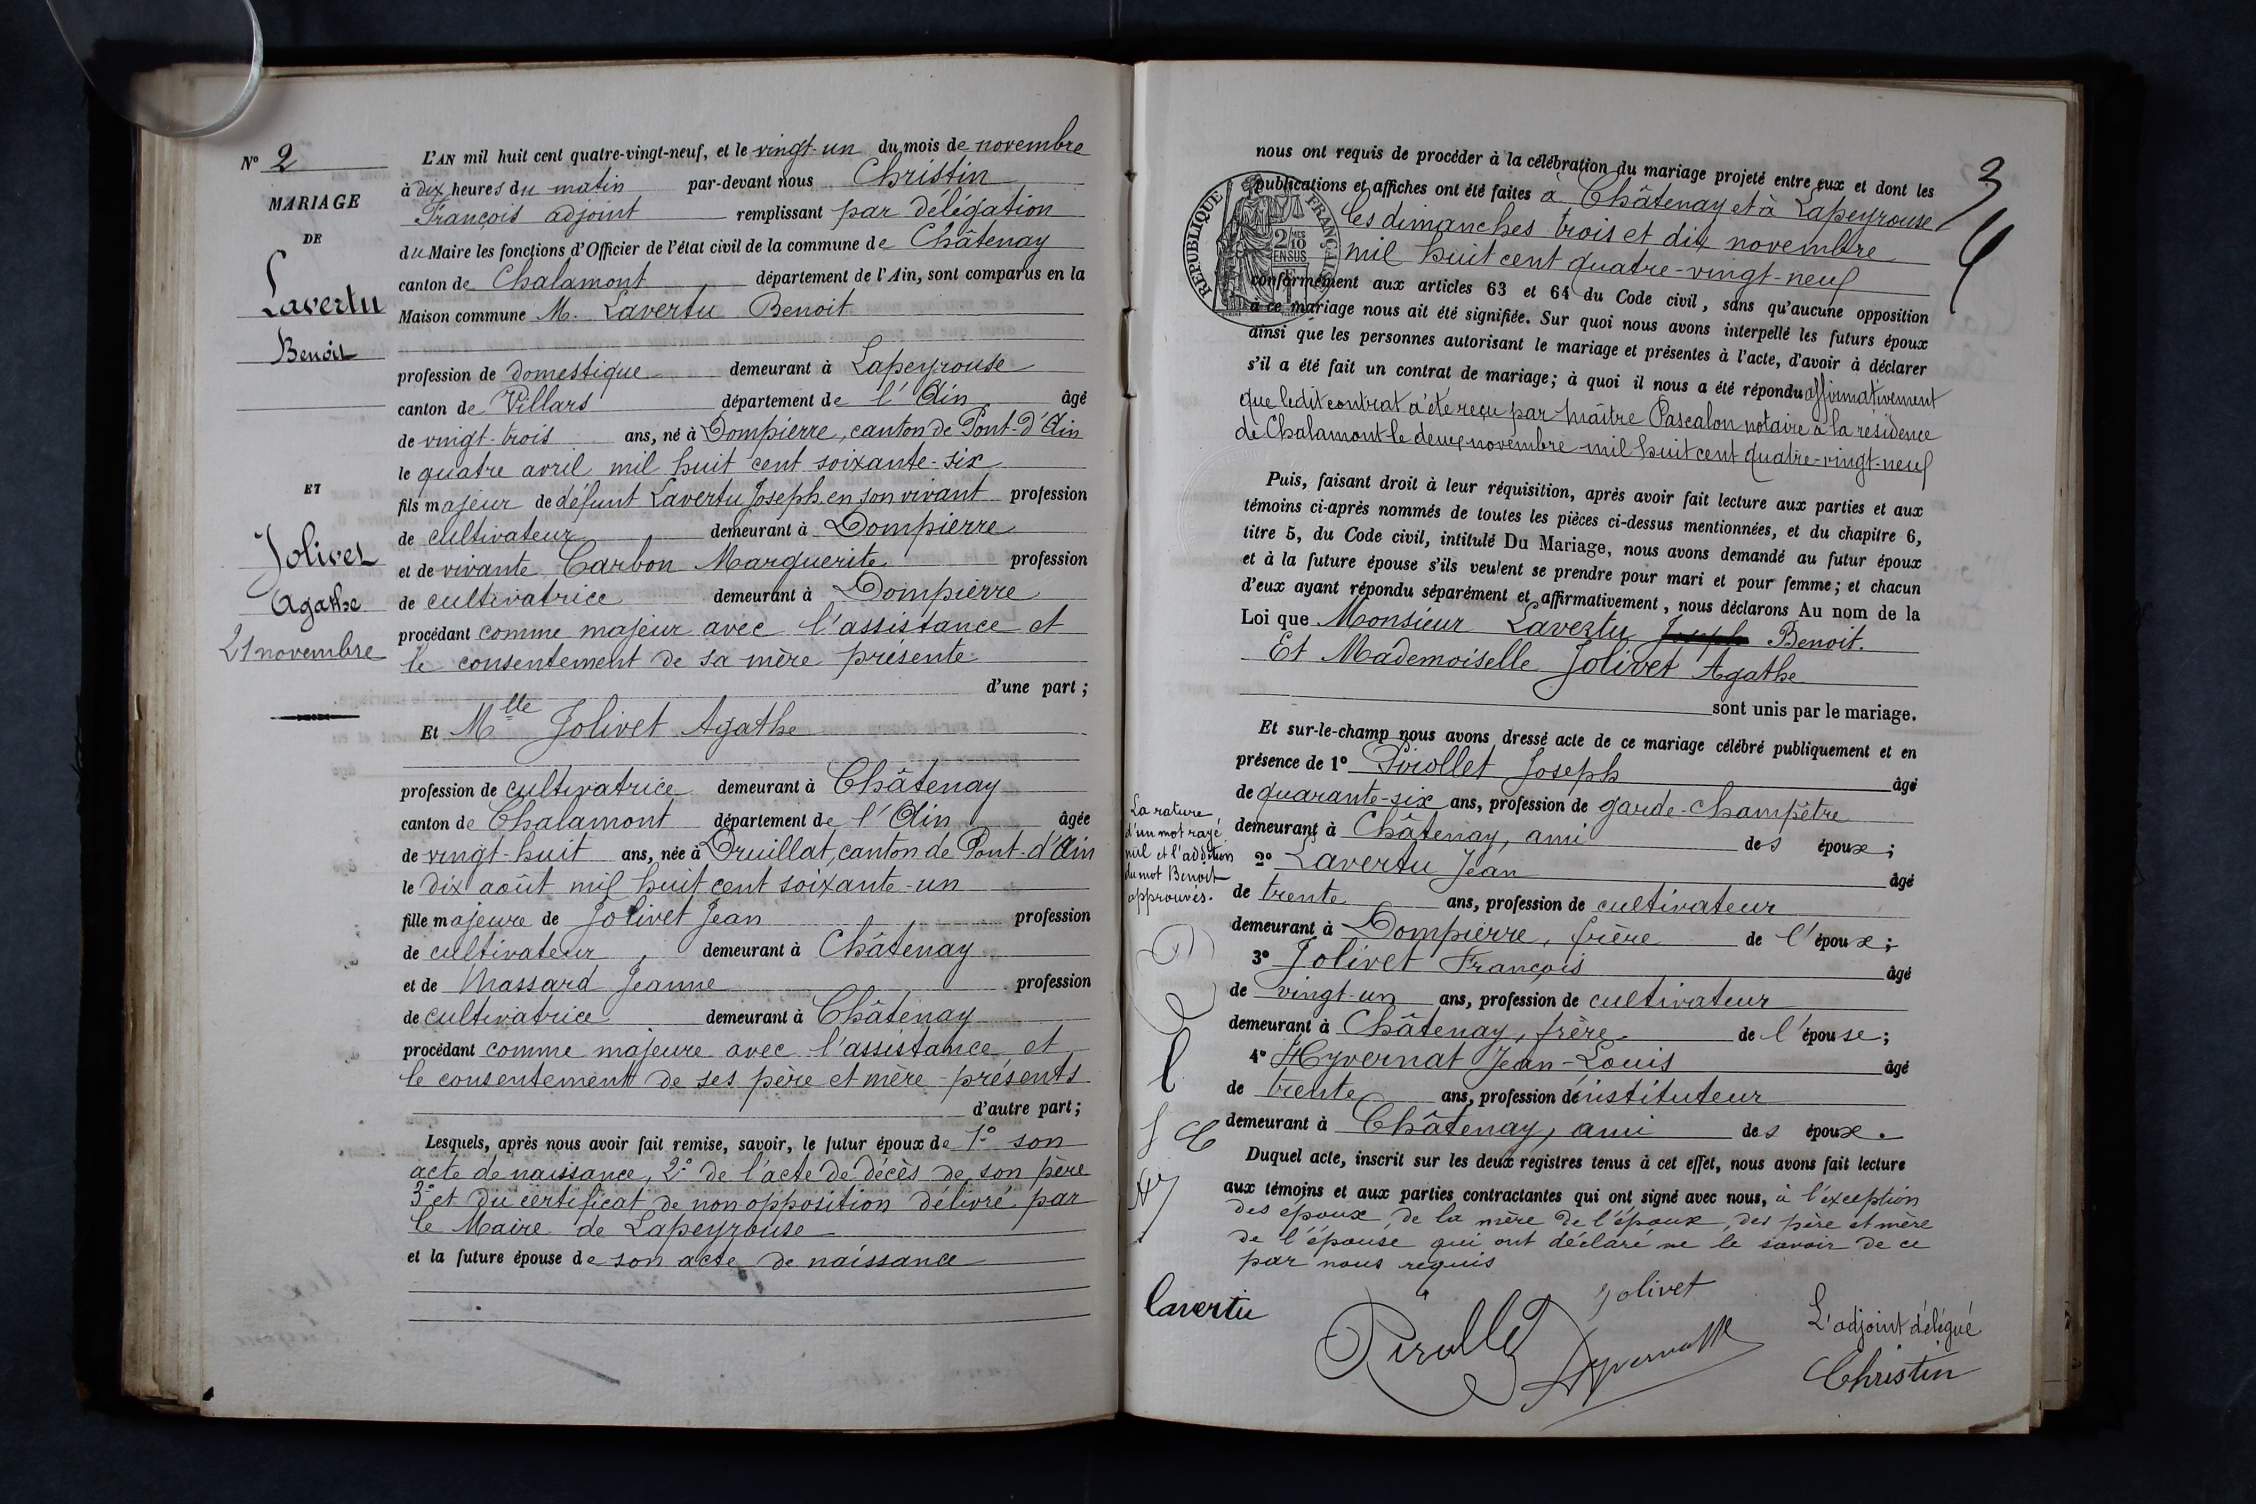 N° 2
MARIAGE
DE
Lavertu
Benoit
ET
Jolivet
Agathe
21 novembre
L'AN mil huit cent quatre-vingt-neuf, et le vingt-un du mois de novembre
à dix heures du matin par-devant nous Christin
François adjoint remplissant par délégation
du Maire les fonctions d'Officier de l'état civil de la commune de Châtenay
canton de Chalamont département de l'Ain, sont comparus en la
Maison commune M. Lavertu Benoit
profession de domestique demeurant à Lapeyrouse
canton de Villars département de l'Ain âgé
de vingt-trois ans, né à Dompierre, canton de Pont-d'Ain
le quatre avril mil huit cent soixante-six
fils majeur de défunt Lavertu Joseph en son vivant profession
de cultivateur demeurant à Dompierre
et de vivante Carbon Marguerite profession
de cultivatrice demeurant à Dompierre
procédant comme majeur avec l'assistance et
le consentement de sa mère présente
d'une part ;
Et Mlle Jolivet Agathe
profession de cultivatrice demeurant à Châtenay
canton de Chalamont département de l'Ain âgée
de vingt-huit ans, née à Druillat, canton de Pont-d'Ain
le dix août mil huit cent soixante-un
fille majeure de Jolivet Jean profession
de cultivateur, demeurant à Châtenay
et de Massard Jeanne profession
de cultivatrice demeurant à Châtenay
procédant comme majeure avec l'assistance et
le consentement de ses père et mère présents
d'autre part ;
Lesquels, après nous avoir fait remise, savoir, le futur époux de 1° son
acte de naissance, 2° de l'acte de décès de son père
3° et du certificat de non opposition délivré par
le Maire de Lapeyrouse
et la future épouse de son acte de naissance
3
nous ont requis de procéder à la célébration du mariage projeté entre eux et dont les
publications et affiches ont été faites à Châtenay et à Lapeyrouse
les dimanches trois et dix novembre
mil huit cent quatre-vingt-neuf
RÉPUBLIQUE FRANÇAISE
2/10 MES
EN SUS
conformément aux articles 63 et 64 du Code civil, sans qu'aucune opposition
à ce mariage nous ait été signifiée. Sur quoi nous avons interpellé les futurs époux
ainsi que les personnes autorisant le mariage et présentes à l'acte, d'avoir à déclarer
s'il a été fait un contrat de mariage; à quoi il nous a été répondu affirmativement
que ledit contrat a été reçu par Maître Pascalon notaire à la résidence
de Chalamont le deux novembre mil huit cent quatre-vingt-neuf
Puis, faisant droit à leur réquisition, après avoir fait lecture aux parties et aux
témoins ci-après nommés de toutes les pièces ci-dessus mentionnées, et du chapitre 6,
titre 5, du Code civil, intitulé Du Mariage, nous avons demandé au futur époux
et à la future épouse s'ils veulent se prendre pour mari et pour femme; et chacun
d'eux ayant répondu séparément et affirmativement, nous déclarons Au nom de la
Loi que Monsieur Lavertu Joseph Benoit.
Et Mademoiselle Jolivet Agathe
sont unis par le mariage.
Et sur-le-champ nous avons dressé acte de ce mariage célébré publiquement et en
présence de 1° Pirollet Joseph âgé
de quarante-six ans, profession de garde-champêtre
demeurant à Châtenay, ami des époux ;
2° Lavertu Jean âgé
de trente ans, profession de cultivateur
demeurant à Dompierre, frère de l'époux ;
3° Jolivet François âgé
de vingt-un ans, profession de cultivateur
demeurant à Châtenay, frère de l'épouse ;
4° Hyvernat Jean-Louis âgé
de trente ans, profession d'instituteur
demeurant à Châtenay, ami des époux.
Duquel acte, inscrit sur les deux registres tenus à cet effet, nous avons fait lecture
aux témoins et aux parties contractantes qui ont signé avec nous, à l'exception
des époux, de la mère de l'époux, des père et mère
de l'épouse qui ont déclaré ne le savoir de ce
par nous requis
La rature
d'un mot rayé
nul et l'addition
du mot Benoit
approuvés.
Lavertu
Pirollet
Jolivet
Hyvernat
L'adjoint délégué
Christin